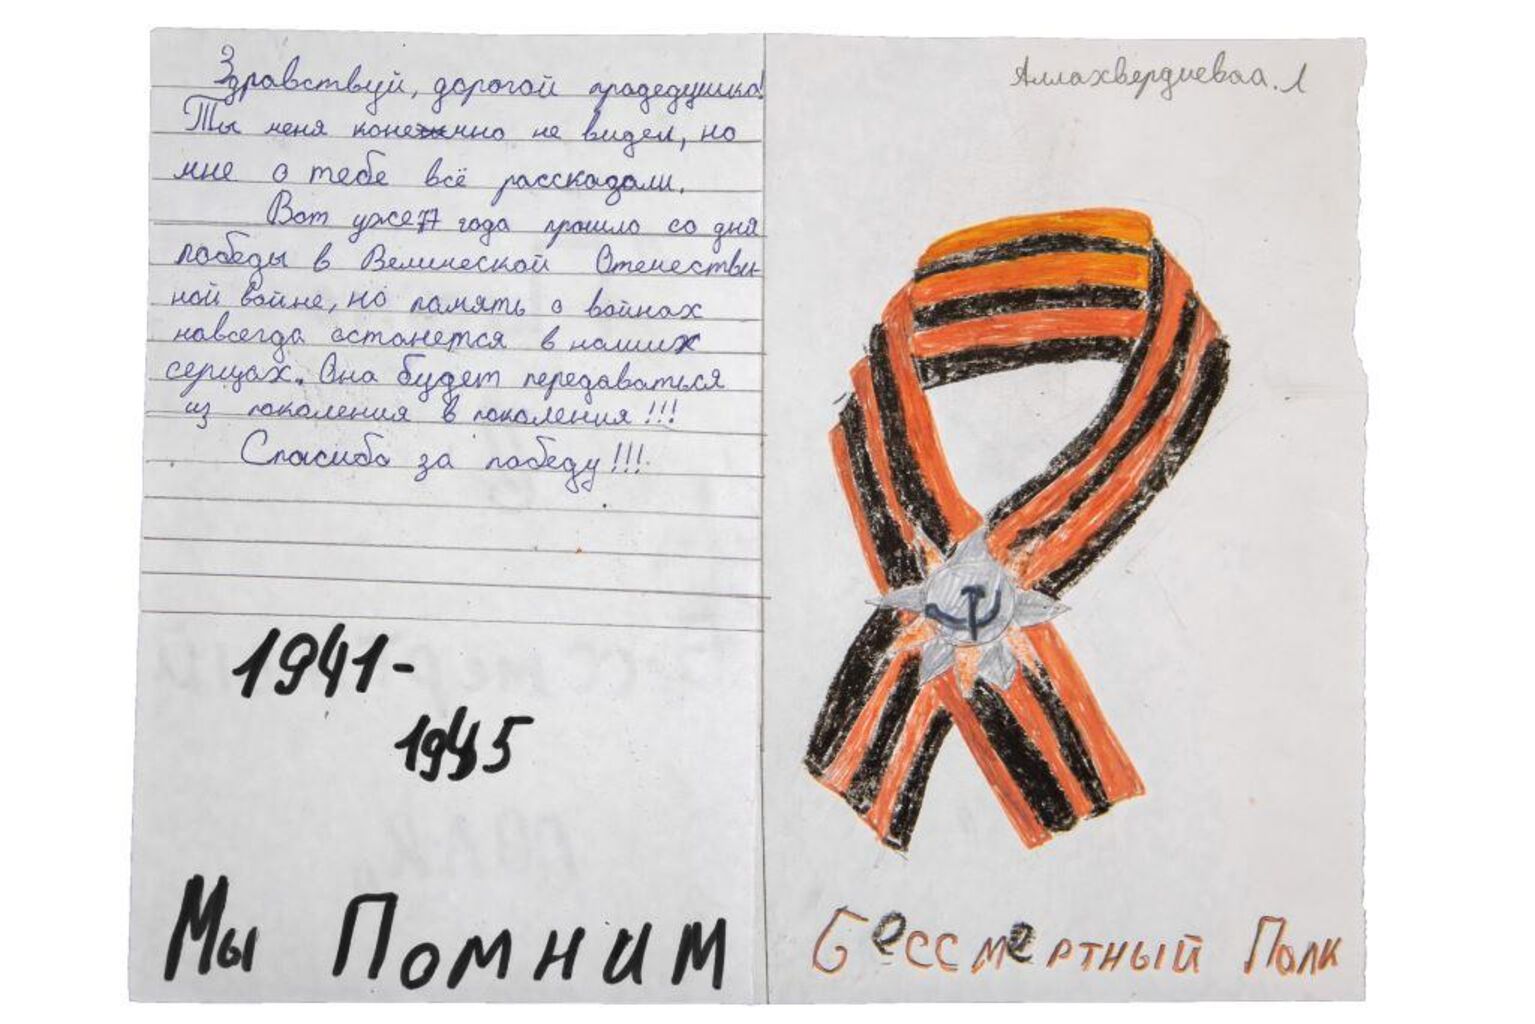 Здравствуй, дорогой прадедушка!
Ты меня конечно не видел, но
мне о тебе всё рассказали.
Вот уже 77 года прошло со дня
победы в Велической Отечествен-
ной войне, но память о войнах
навсегда останется в наших
сердцах. Она будет передаваться
из поколения в поколения!!!
Спасибо за победу!!!
1941-
1945
Мы Помним
Аллахвердиеваа. Л
Бессмертный Полк